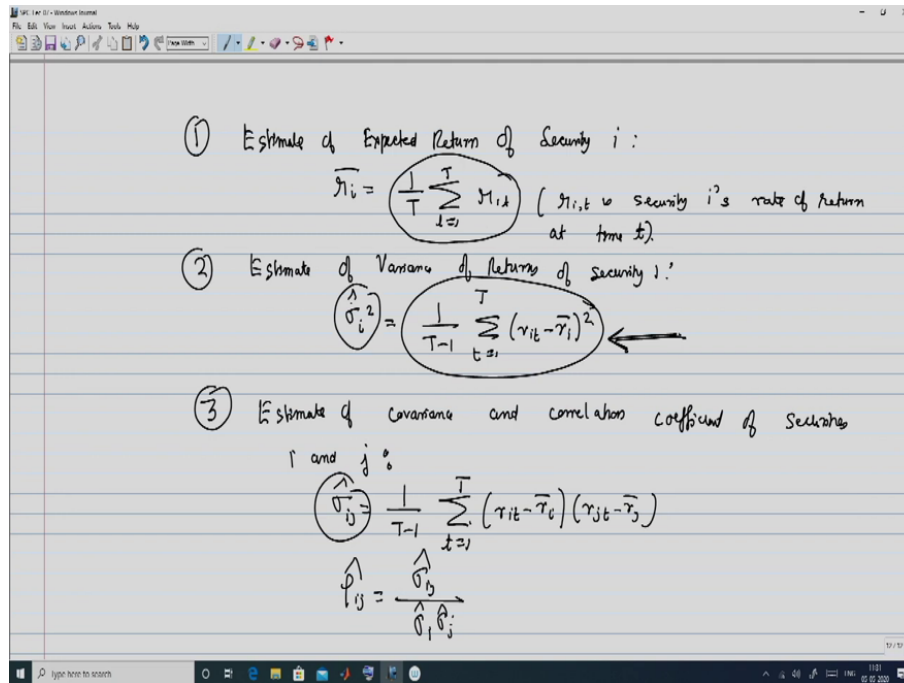 SPC Lec 07 - Windows Journal
File Edit View Insert Actions Tools Help
Page Width
① Estimate of Expected Return of Security i :
r̅i = 1/T ∑_{t=1}^{T} ri,t ( ri,t is security i's rate of return
at time t).
② Estimate of Variance of Returns of Security i :
σ̂i² = 1/(T-1) ∑_{t=1}^{T} (rit - r̅i)²
③ Estimate of covariance and correlation coefficient of securities
i and j :
σ̂ij = 1/(T-1) ∑_{t=1}^{T} (rit - r̅i) (rjt - r̅j)
ρ̂ij = σ̂ij / σ̂i σ̂j
12 / 12
Type here to search
ENG
11:01
05-03-2020